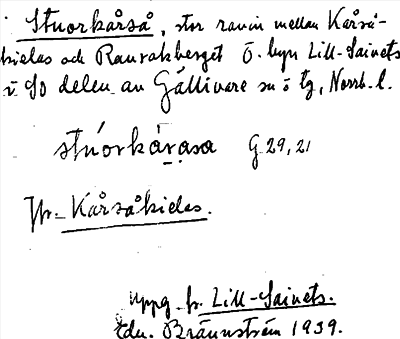 Stuorkårså, stor ravin mellan Kårså-
kielas och Rauvakberget Ö. byn Lill-Saivets
i SO delen av Gällivare sn o tg, Norrb. l.
stúorkárasa G 29, 21
Jfr. Kårsåkielas.
Uppg. fr. Lill-Saivets.
Edv. Brännström 1939.